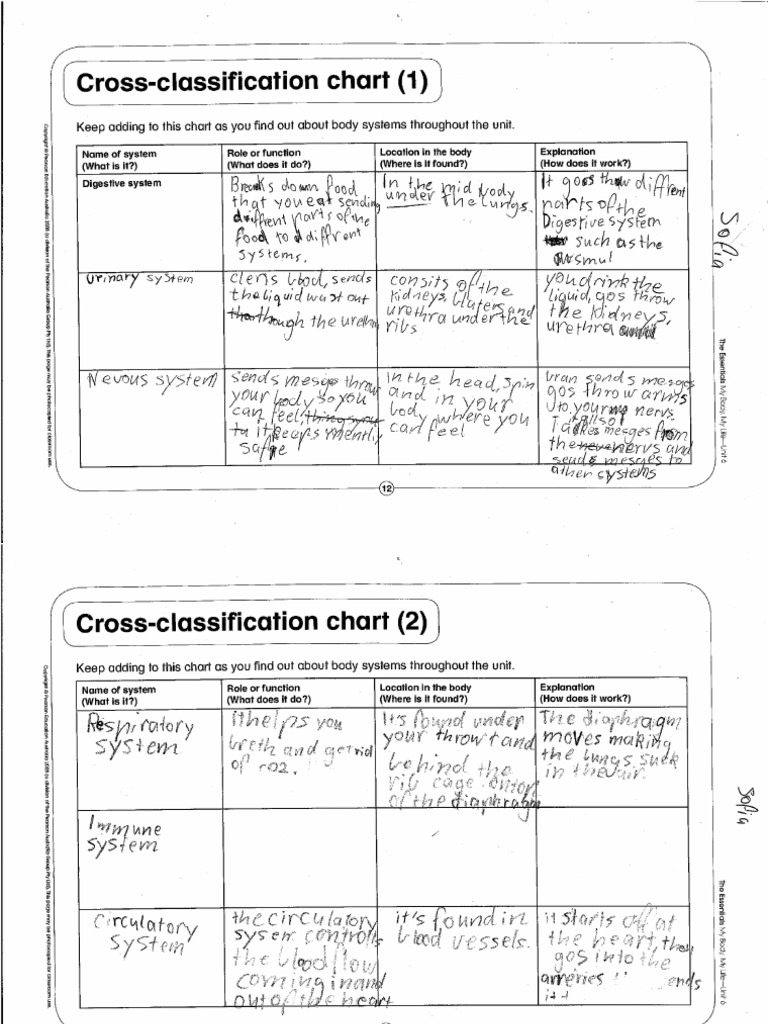 Cross-classification chart (1)
Keep adding to this chart as you find out about body systems throughout the unit.
Name of system
(What is it?)
Role or function
(What does it do?)
Location in the body
(Where is it found?)
Explanation
(How does it work?)
Digestive system
Breaks down food
that you eat sending
diffrent parts of the
food to diffrent
systems.
In the mid body
under the lungs.
It goes throw diffrent
parts of the
Digestive system
such as the
Urinary system
clens blood, sends
the liquid wast out
though the urethra
consits of the
kidneys, bluters and
urethra under the
ribs
you drink the
liquid, gos throw
the kidneys,
urethra
Nevous system
sends mesge throw
your body so you
can feel,
it keeps mently
safe
in the head, spin
and in your
body where you
can feel
bran sends mesges
gos throw arms
to your nervs.
It allso
Takes mesges from
the nervs and
sends mesges to
other systems
12
Sofia
Copyright © Pearson Education Australia 2008 (a division of Pearson Australia Group Pty Ltd). This page may be photocopied for classroom use.
The Essentials My Body, My Life—Unit 6
Cross-classification chart (2)
Keep adding to this chart as you find out about body systems throughout the unit.
Name of system
(What is it?)
Role or function
(What does it do?)
Location in the body
(Where is it found?)
Explanation
(How does it work?)
Respiratory
system
it helps you
breth and get rid
of co2.
It's found under
your throwt and
behind the
rib cage ontop
of the diaphragm
The diaphragm
moves making
the lungs suck
in the air.
Immune
system
Circulatory
system
the circulatory
sysem controlls
the blood flow
coming in and
out of the heart
it's found in
blood vessels.
it starts off at
the heart, then
gos into the
arreries ends
Sofia
Copyright © Pearson Education Australia 2008 (a division of Pearson Australia Group Pty Ltd). This page may be photocopied for classroom use.
The Essentials My Body, My Life—Unit 6